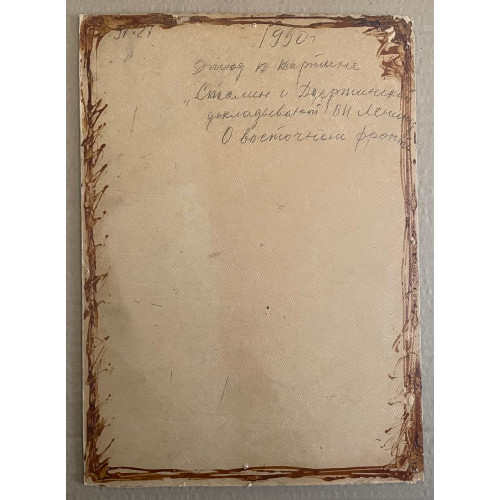 51-27
1950 г
Этюд к картине
"Сталин и Дзержинский
докладывают ВИ Ленину
О восточном фронте